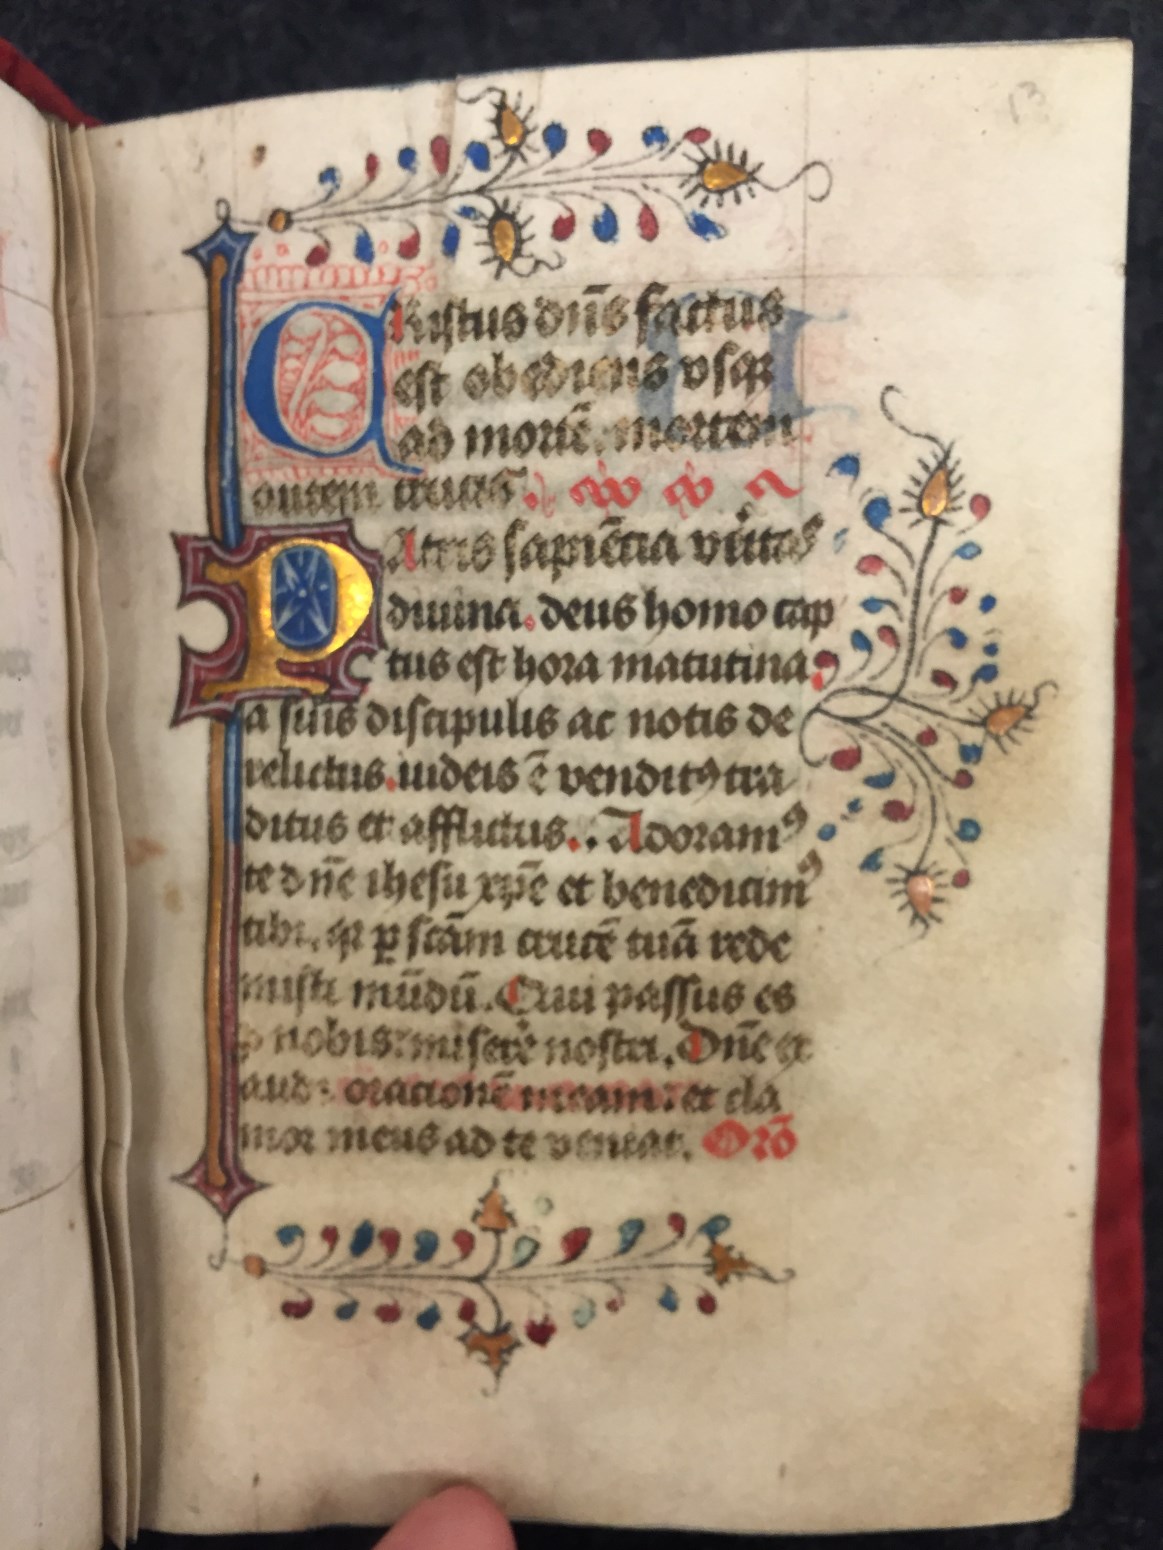 13
CRistus dn̄s factus
est obediens vsqꝫ
ad mortē. mortem
autem crucis.
PAtris sapiēcia vitas
diuina. deus homo cap
tus est hora matutina.
a suis discipulis ac notis de
relictus. iudeis ē venditꝰ tra
ditus et afflictus. Adoramꝰ
te dn̄e ihesu xp̄e et benedicimꝰ
tibi. qꝛ ꝑ scām crucē tuā rede
misti mūdū. Qui passus es
ꝓ nobis: miserē nostri. Dn̄e ex
audi oracionē meam: et cla
mor meus ad te veniat. Orō